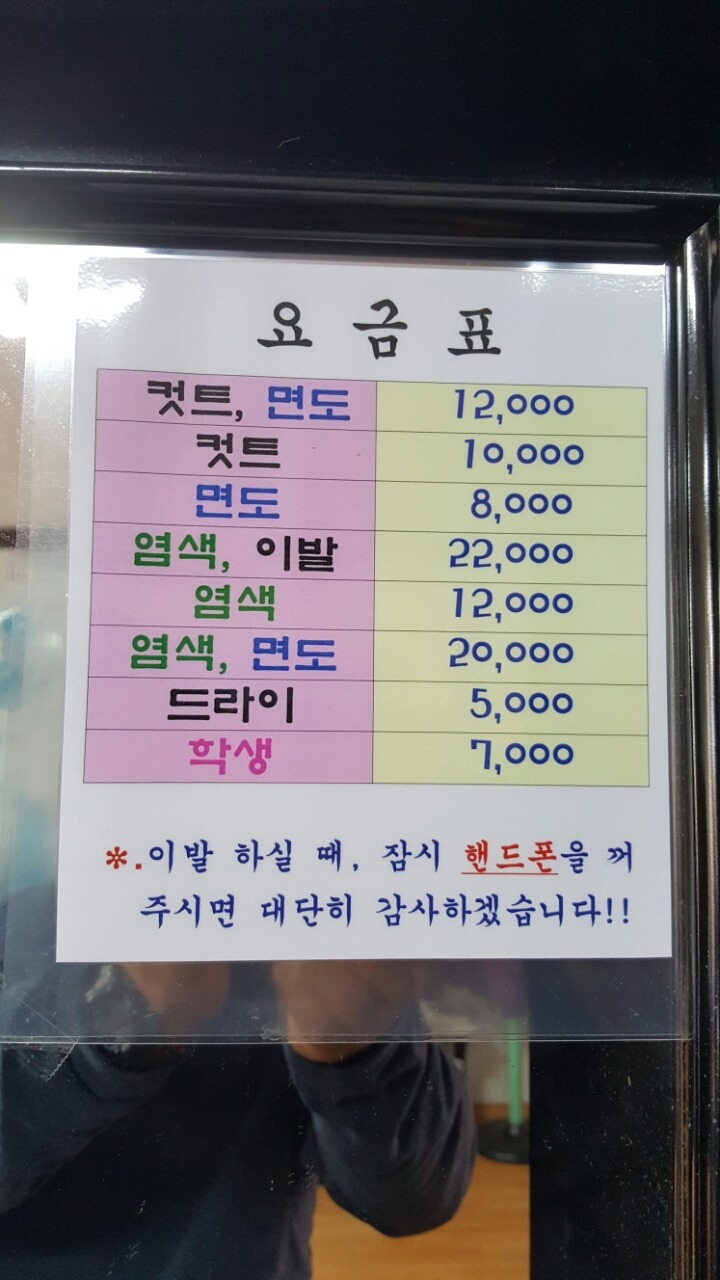 요 금 표
컷트, 면도 12,000
컷트 10,000
면도 8,000
염색, 이발 22,000
염색 12,000
염색, 면도 20,000
드라이 5,000
학생 7,000
*.이발 하실 때, 잠시 핸드폰을 꺼
주시면 대단히 감사하겠습니다!!